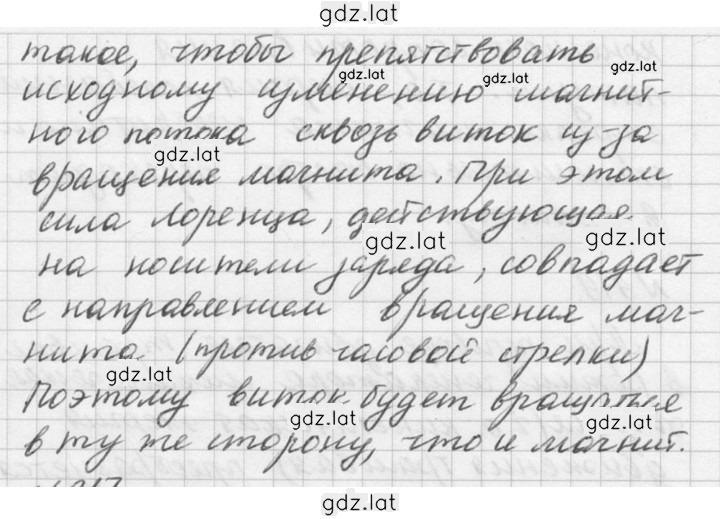 gdz.lat
такое, чтобы препятствовать
gdz.lat
исходному изменению магнит-
gdz.lat
ного потока сквозь виток из-за
gdz.lat
вращения магнита. При этом
сила Лоренца, действующая
gdz.lat
gdz.lat
на носители заряда, совпадает
с направлением вращения маг-
нита (против часовой стрелки)
gdz.lat
Поэтому виток будет вращаться
gdz.lat
gdz.lat
в ту же сторону, что и магнит.
gdz.lat